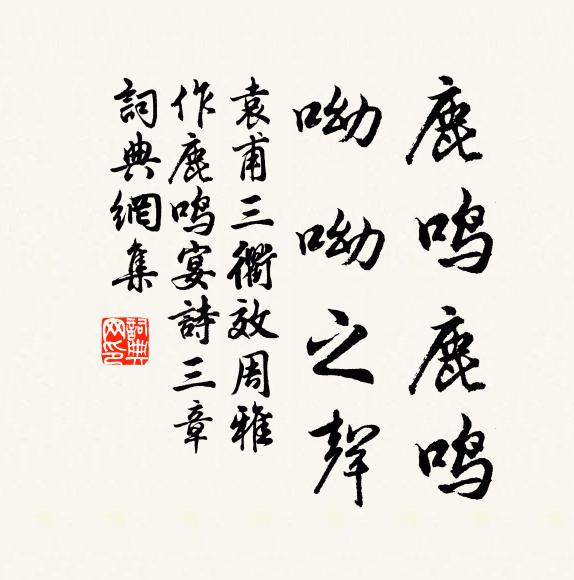 鹿鸣鹿鸣
呦呦之聲
袁甫三衢效周雅
作鹿鸣宴詩三章
詞典網集
詞典網印